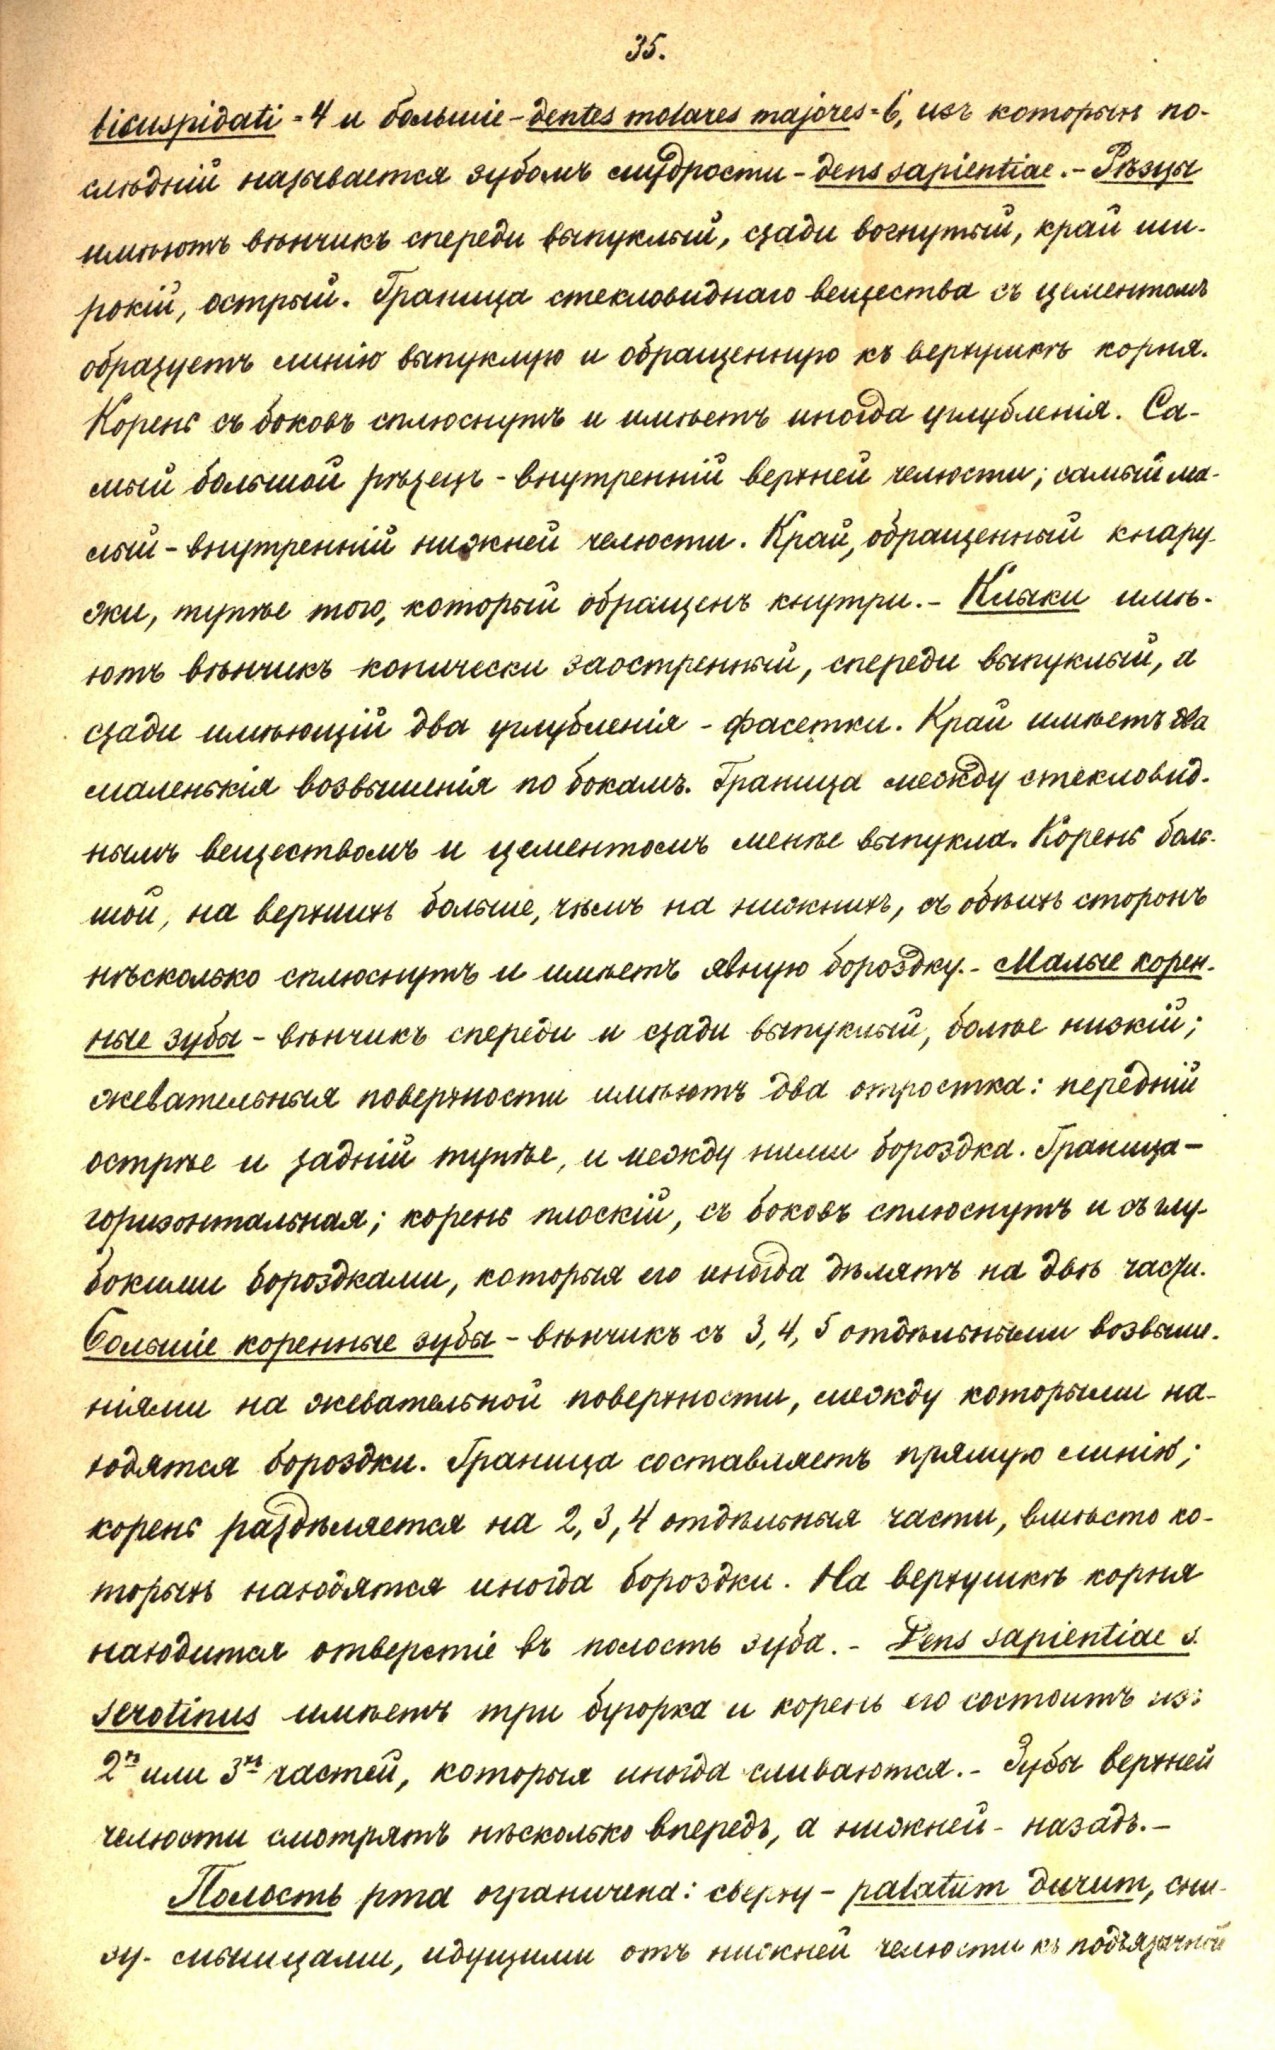 35.
bicuspidati = 4 и большіе – dentes molares majores = 6, изъ которыхъ по-
слѣдній называется зубомъ мудрости – dens sapientiae. – Рѣзцы
имѣютъ вѣнчикъ спереди выпуклый, сзади вогнутый, край ши-
рокій, острый. Граница стекловиднаго вещества съ цементомъ
образуетъ линію выпуклую и обращенную къ верхушкѣ корня.
Корень съ боковъ сплюснутъ и имѣетъ иногда углубленія. Са-
мый большой рѣзецъ – внутренній верхней челюсти; самый ма-
лый – внутренній нижней челюсти. Край, обращенный кнару-
жи, тупѣе того, который обращенъ кнутри. – Клыки имѣ-
ютъ вѣнчикъ конически заостренный, спереди выпуклый, а
сзади имѣющій два углубленія – фасетки. Край имѣетъ два
маленькія возвышенія по бокамъ. Граница между стекловид-
нымъ веществомъ и цементомъ менѣе выпукла. Корень боль-
шой, на верхнихъ больше, чѣмъ на нижнихъ, съ обѣихъ сторонъ
нѣсколько сплюснутъ и имѣетъ явную бороздку. – Малые корен-
ные зубы – вѣнчикъ спереди и сзади выпуклый, болѣе низкій;
жевательныя поверхности имѣютъ два отростка: передній
острѣе и задній тупѣе, и между ними бороздка. Граница –
горизонтальная; корень плоскій, съ боковъ сплюснутъ и съ глу-
бокими бороздками, которыя его иногда дѣлятъ на двѣ части.
Большіе коренные зубы – вѣнчикъ съ 3, 4, 5 отдѣльными возвыше-
ніями на жевательной поверхности, между которыми на-
ходятся бороздки. Граница составляетъ прямую линію;
корень раздѣляется на 2, 3, 4 отдѣльныя части, вмѣсто ко-
торыхъ находятся иногда бороздки. На верхушкѣ корня
находится отверстіе въ полость зуба. – Dens sapientiae s.
serotinus имѣетъ три бугорка и корень его состоитъ изъ
2хъ или 3хъ частей, которыя иногда сливаются. – Зубы верхней
челюсти смотрятъ нѣсколько впередъ, а нижней – назадъ. –
Полость рта ограничена: сверху – palatum durum, сни-
зу – мышцами, идущими отъ нижней челюсти къ подъязычной